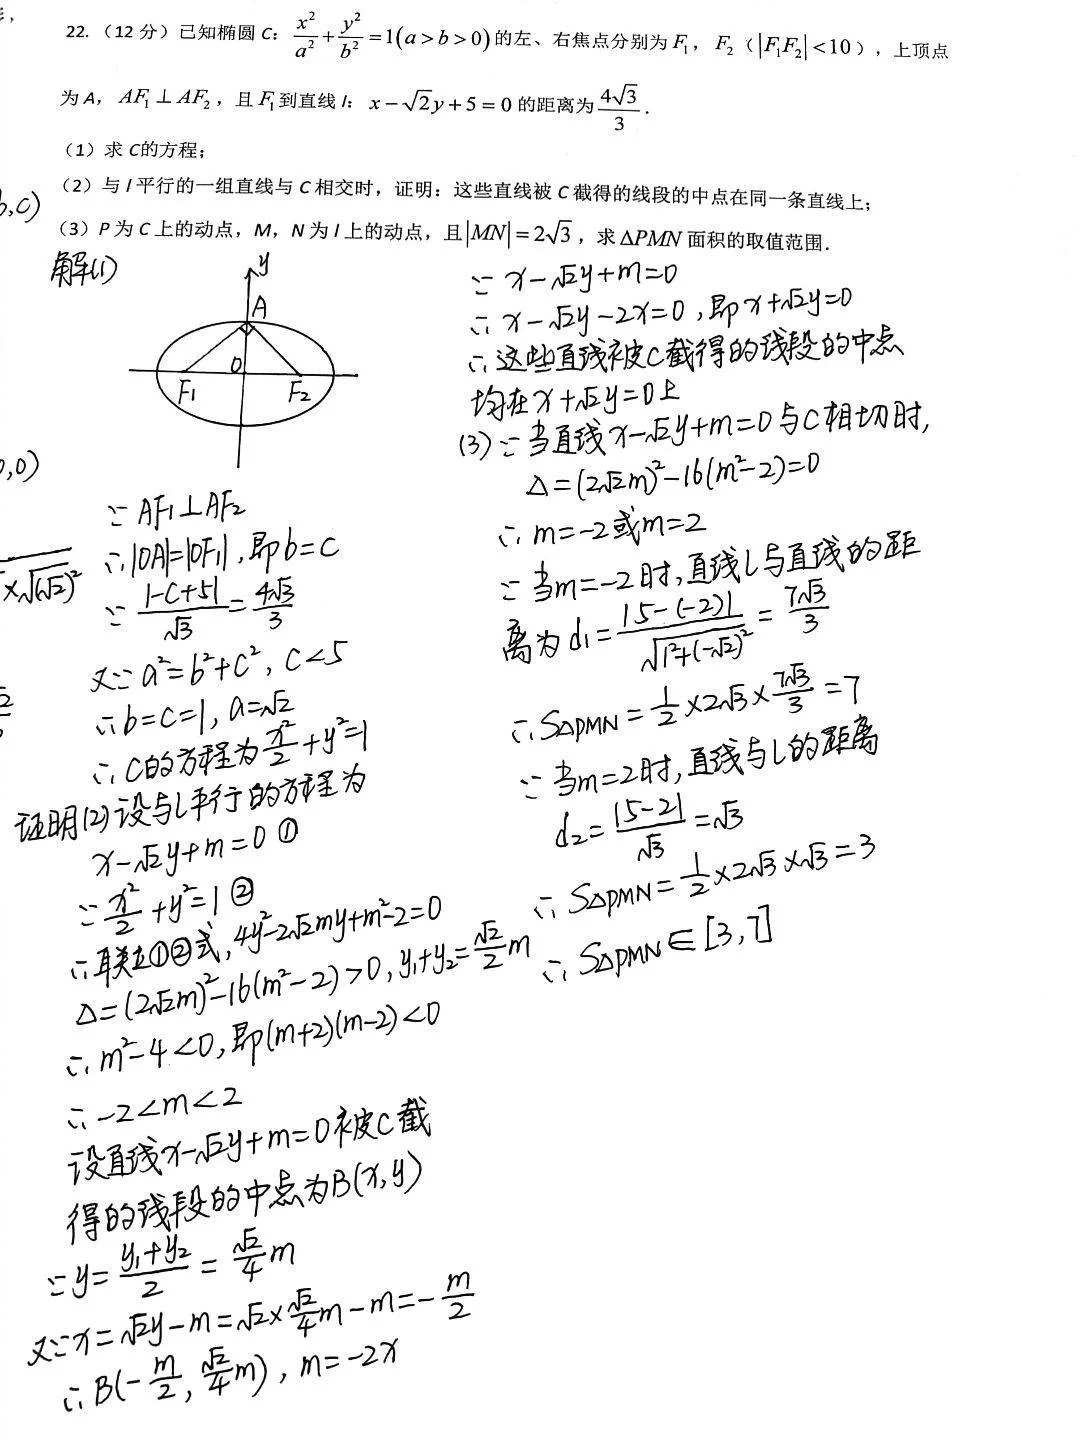 22.（12 分）已知椭圆 C：x²/a² + y²/b² = 1(a > b > 0) 的左、右焦点分别为 F₁，F₂（|F₁F₂| < 10），上顶点
为 A，AF₁ ⊥ AF₂，且 F₁ 到直线 l：x − √2y + 5 = 0 的距离为 4√3/3.
（1）求 C的方程；
（2）与 l 平行的一组直线与 C 相交时，证明：这些直线被 C 截得的线段的中点在同一条直线上；
（3）P 为 C 上的动点，M，N 为 l 上的动点，且|MN| = 2√3，求 △PMN 面积的取值范围.
b,c)
0,0)
×√(√2)²
解(1)
y
A
O
F₁
F₂
∵ AF₁⊥AF₂
∴ |OA|=|OF₁|，即b=c
∵ |-c+5|/√3 = 4√3/3
又∵ a²=b²+c²，c<5
∴ b=c=1，a=√2
∴ C的方程为 x²/2+y²=1
证明(2)设与l平行的方程为
x-√2y+m=0 ①
∵ x²/2+y²=1 ②
∴ 联立①②式，4y²-2√2my+m²-2=0
Δ=(2√2m)²-16(m²-2)>0，y₁+y₂=√2/2 m
∴ m²-4<0，即(m+2)(m-2)<0
∴ -2<m<2
设直线x-√2y+m=0被C截
得的线段的中点为B(x,y)
∵ y=(y₁+y₂)/2=√2/4 m
又∵ x=√2y-m=√2×√2/4 m-m=-m/2
∴ B(-m/2, √2/4 m)，m=-2x
∵ x-√2y+m=0
∴ x-√2y-2x=0，即x+√2y=0
∴ 这些直线被C截得的线段的中点
均在x+√2y=0上
(3)∵ 当直线x-√2y+m=0与C相切时，
Δ=(2√2m)²-16(m²-2)=0
∴ m=-2或m=2
∵ 当m=-2时，直线l与直线的距
离为d₁=|5-(-2)|/√(1²+(-√2)²)=7√3/3
∴ S△PMN=1/2×2√3×7√3/3=7
∵ 当m=2时，直线与l的距离
d₂=|5-2|/√3=√3
∴ S△PMN=1/2×2√3×√3=3
∴ S△PMN∈[3,7]